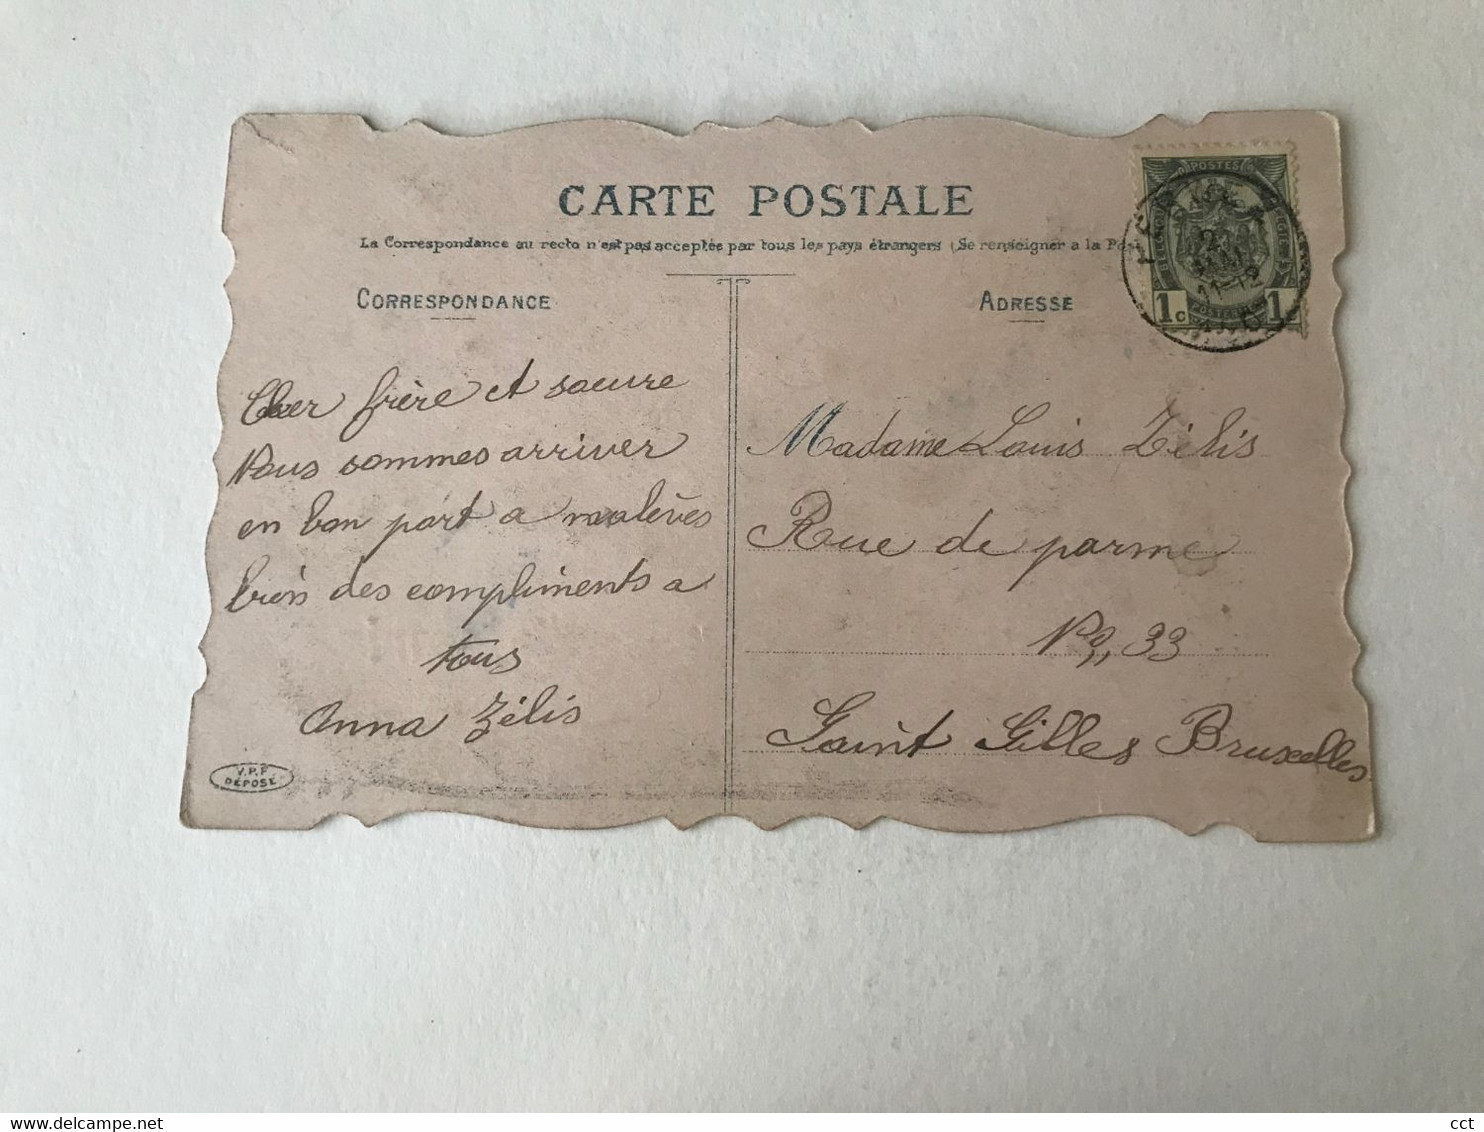 CARTE POSTALE
La Correspondance au recto n'est pas acceptée par tous les pays étrangers (Se renseigner a la Po
CORRESPONDANCE
ADRESSE
POSTES
1c 1c
11-12
Cher frère et soeure
Nous sommes arriver
en bon port a malèves
bien des compliments a
tous
Anna Zélis
V.P.F
DÉPOSÉ
Madame Louis Zélis
Rue de parme
No,, 33
Saint Gilles Bruxelles
cct